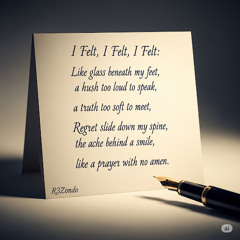 I Felt, I Felt, I Felt:
Like glass beneath my feet,
a hush too loud to speak,
a truth too soft to meet,
Regret slide down my spine,
the ache behind a smile,
like a prayer with no amen.
R3Zondo
ai